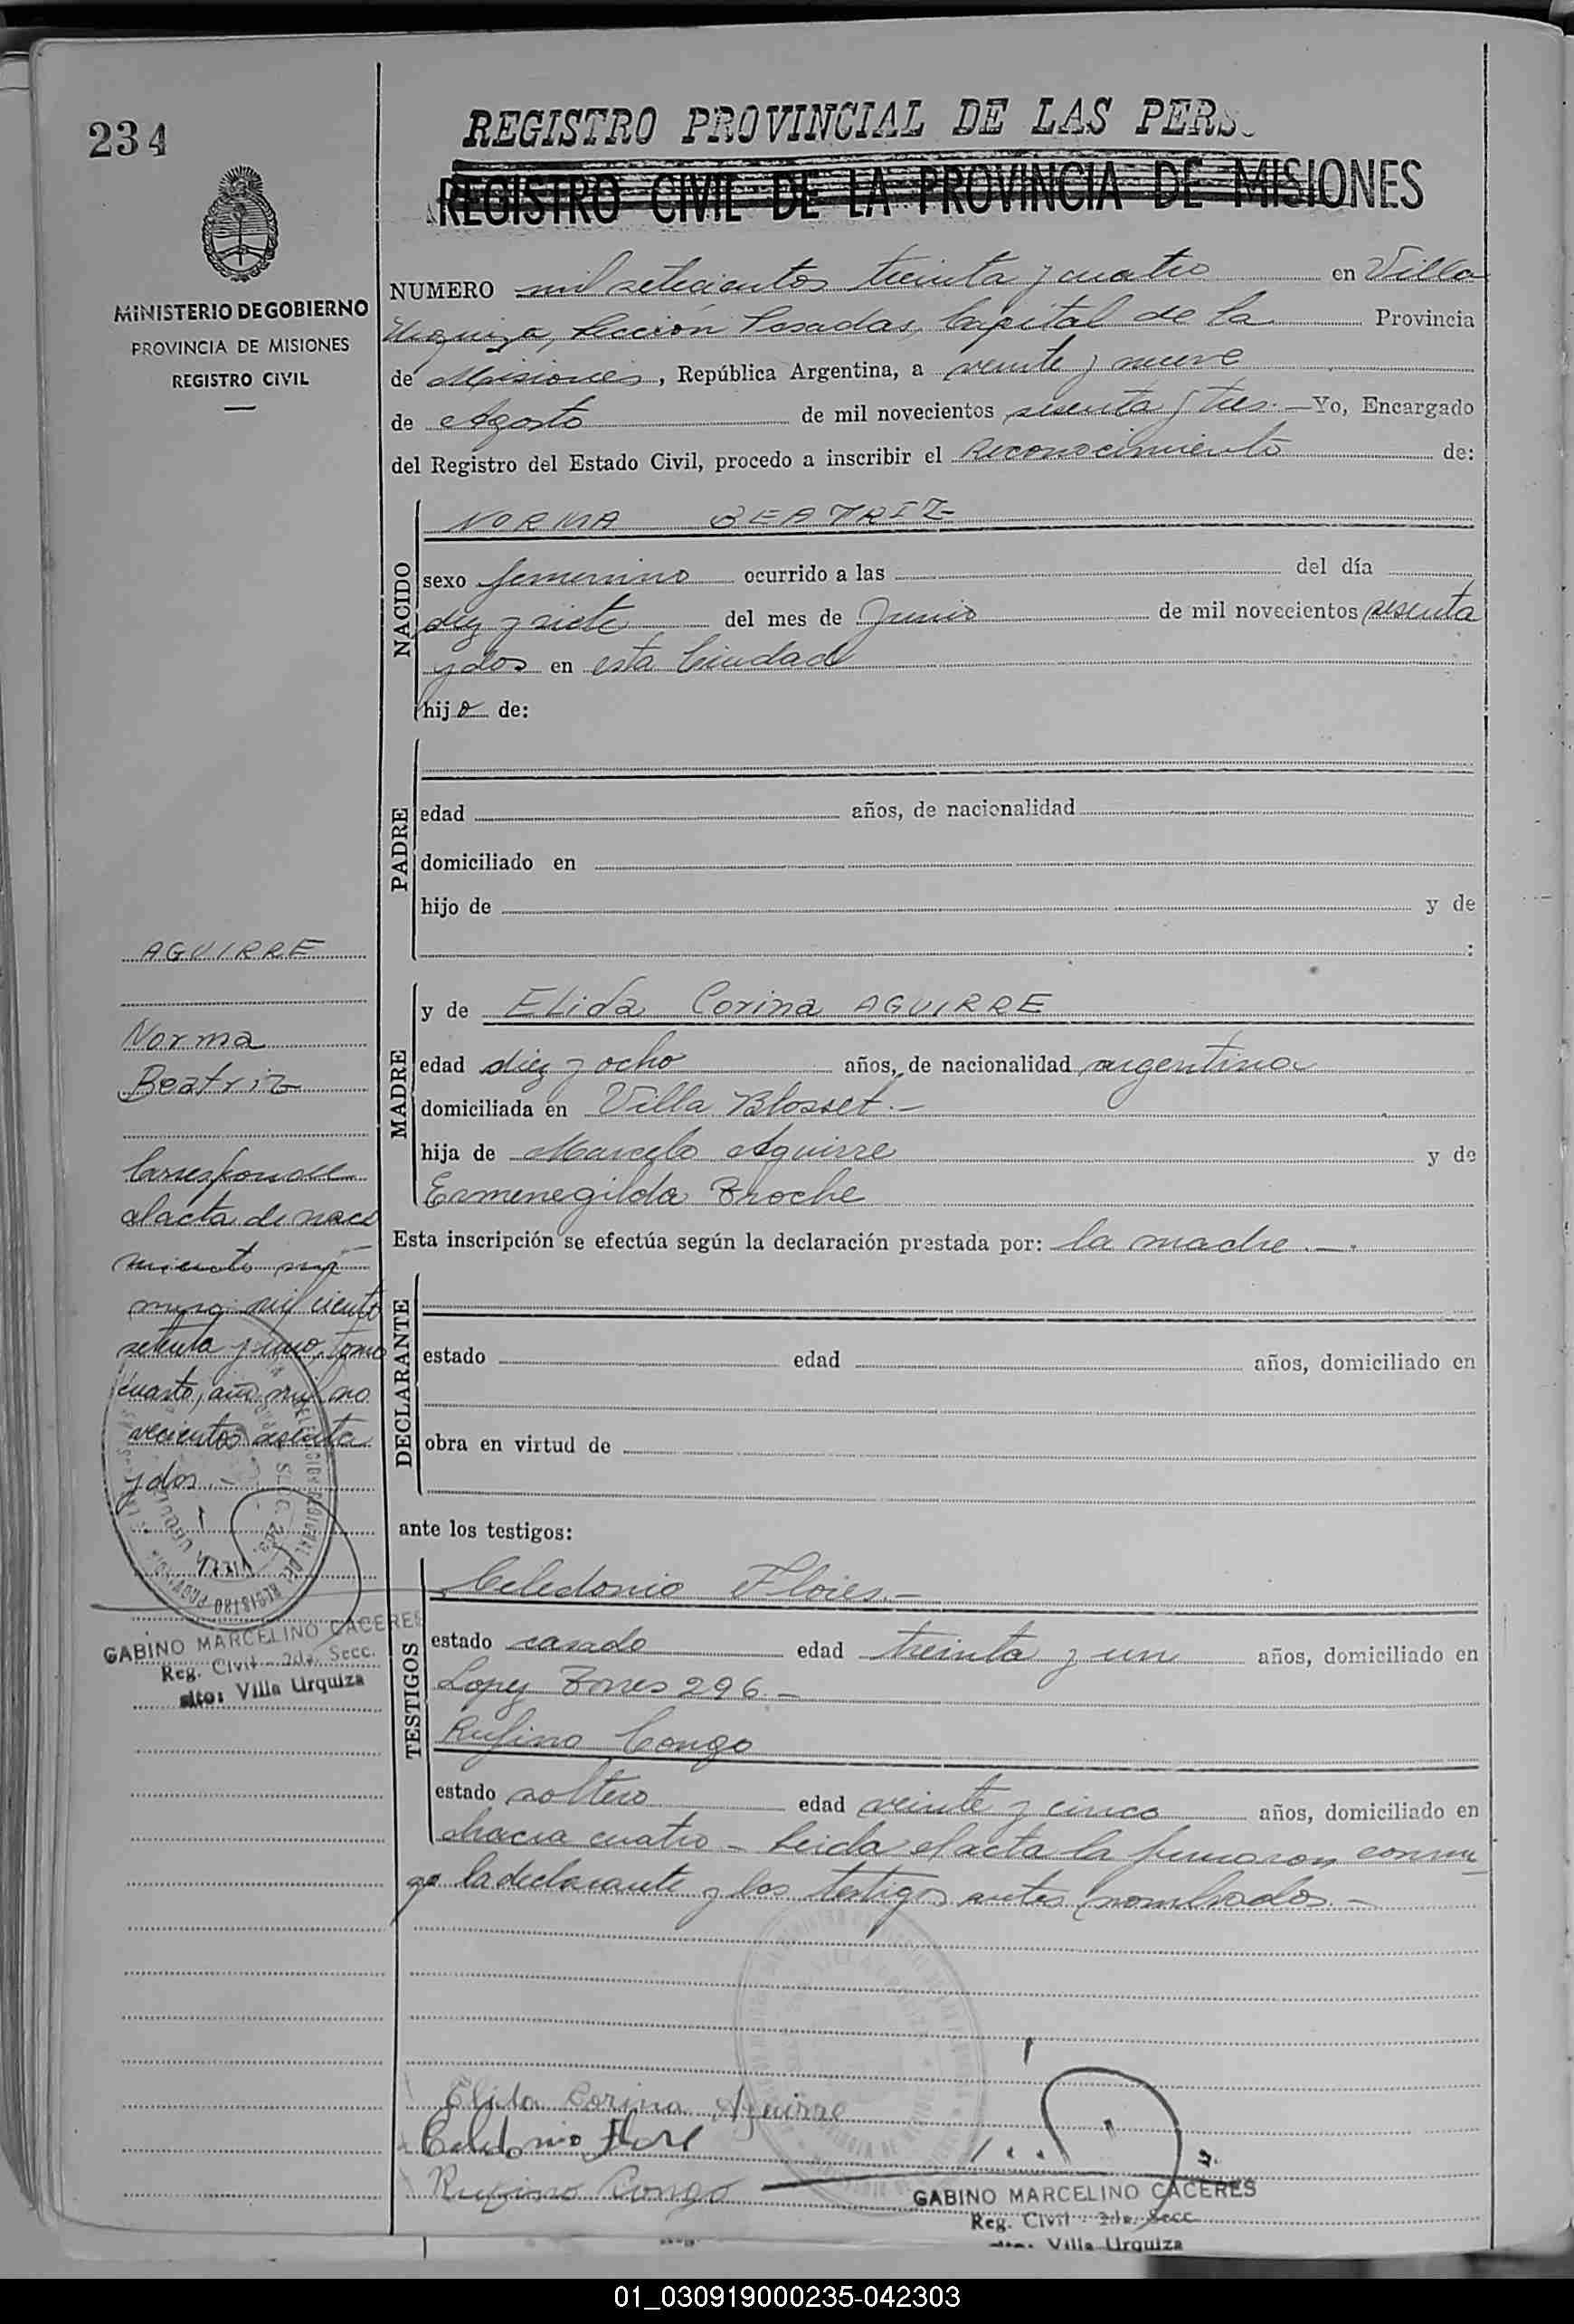 234
REGISTRO PROVINCIAL DE LAS PERS
REGISTRO CIVIL DE LA PROVINCIA DE MISIONES
MINISTERIO DE GOBIERNO
PROVINCIA DE MISIONES
REGISTRO CIVIL
NUMERO mil setecientos treinta y cuatro en Villa
Urquiza, Sección Posadas, Capital de la Provincia
de Misiones, República Argentina, a veinte y nueve
de Agosto de mil novecientos sesenta y tres.- Yo, Encargado
del Registro del Estado Civil, procedo a inscribir el Reconocimiento de:
NACIDO
NORMA BEATRIZ
sexo femenino ocurrido a las del día
diez y siete del mes de Junio de mil novecientos sesenta
y dos en esta Ciudad
hija de:
PADRE
edad años, de nacionalidad
domiciliado en
hijo de y de
:
AGUIRRE
Norma
Beatriz
Corresponde
al acta de naci
miento nú
mero mil ciento
setenta y uno, tomo
cuarto, año mil no
vecientos sesenta
y dos.-
GABINO MARCELINO CACERES
Reg. Civil 2da. Secc.
sito: Villa Urquiza
MADRE
y de Elida Corina AGUIRRE
edad diez y ocho años, de nacionalidad argentina
domiciliada en Villa Blosset.-
hija de Marcelo Aguirre y de
Ermenegilda Broche
Esta inscripción se efectúa según la declaración prestada por: la madre.-.
DECLARANTE
estado edad años, domiciliado en
obra en virtud de
ante los testigos:
TESTIGOS
Celedonio Flores.-
estado casado edad treinta y un años, domiciliado en
Lopez Torres 296.-
Rufino Congo
estado soltero edad veinte y cinco años, domiciliado en
chacra cuatro - Leida el acta la firmaron conmi
go la declarante y los testigos antes nombrados.-
Elida Corina Aguirre
Celedonio Flore
Rufino Congo
GABINO MARCELINO CACERES
Reg. Civil 2da. Secc
sito: Villa Urquiza
01_030919000235-042303